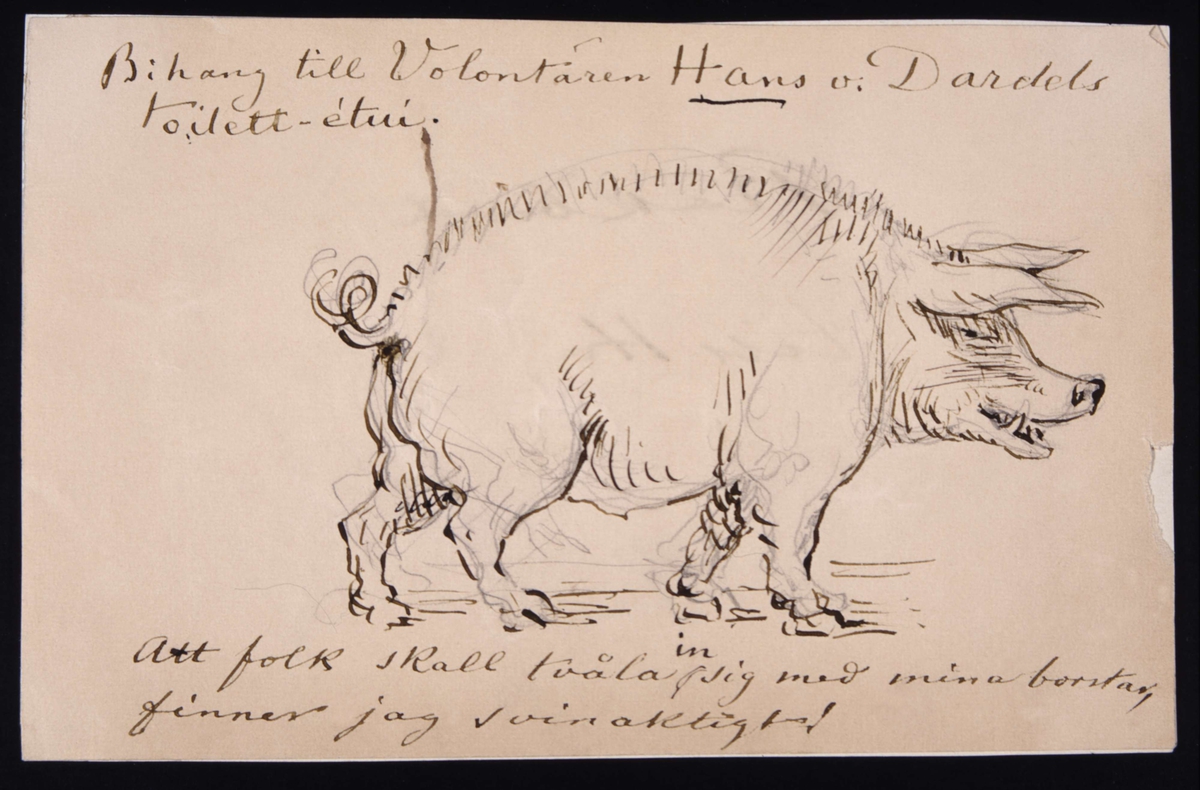 Bihang till Volontären Hans v. Dardels
toilett-étui.
Att folk skall tvåla in sig med mina borstar,
finner jag svinaktigt!